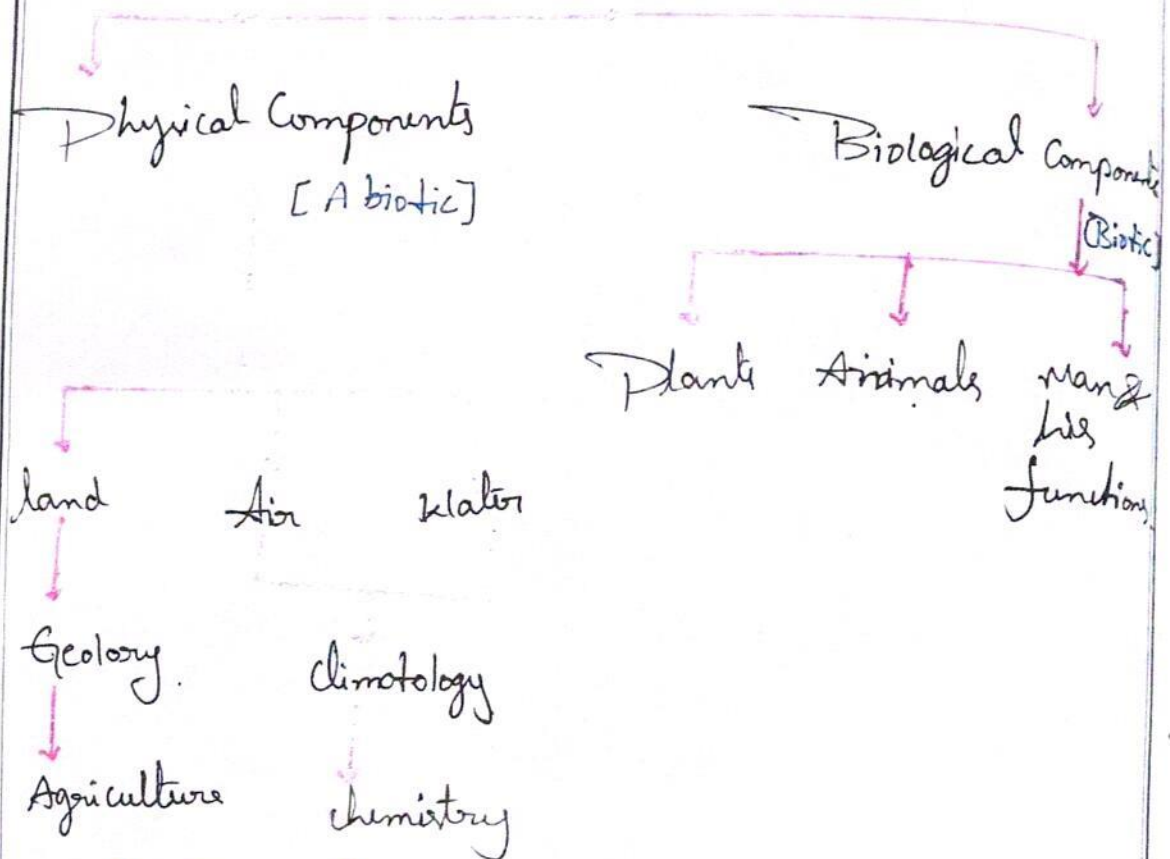 Physical Components
[Abiotic]
Biological Components
[Biotic]
Plants Animals Man &
his
functions
land Air Water
Geology
Climatology
Agriculture
chemistry